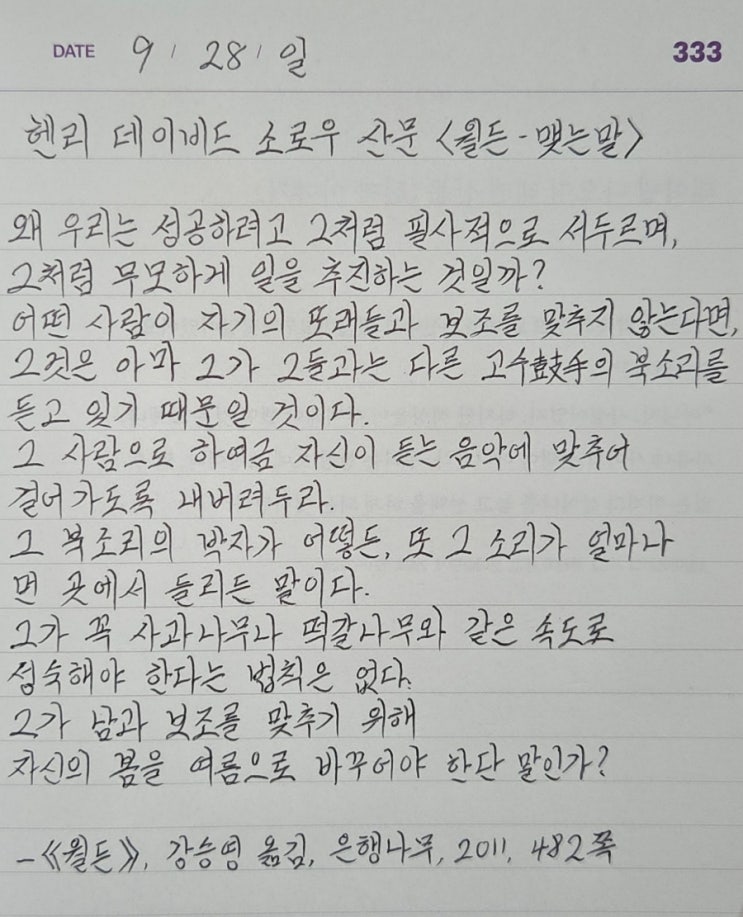 DATE 9 / 28 / 일 333
헨리 데이비드 소로우 산문 <월든 - 맺는말>
왜 우리는 성공하려고 그처럼 필사적으로 서두르며,
그처럼 무모하게 일을 추진하는 것일까?
어떤 사람이 자기의 또래들과 보조를 맞추지 않는다면,
그것은 아마 그가 그들과는 다른 고수鼓手의 북소리를
듣고 있기 때문일 것이다.
그 사람으로 하여금 자신이 듣는 음악에 맞추어
걸어가도록 내버려두라.
그 북소리의 박자가 어떻든, 또 그 소리가 얼마나
먼 곳에서 들리든 말이다.
그가 꼭 사과나무나 떡갈나무와 같은 속도로
성숙해야 한다는 법칙은 없다.
그가 남과 보조를 맞추기 위해
자신의 봄을 여름으로 바꾸어야 한단 말인가?
-《월든》, 강승영 옮김, 은행나무, 2011, 482쪽